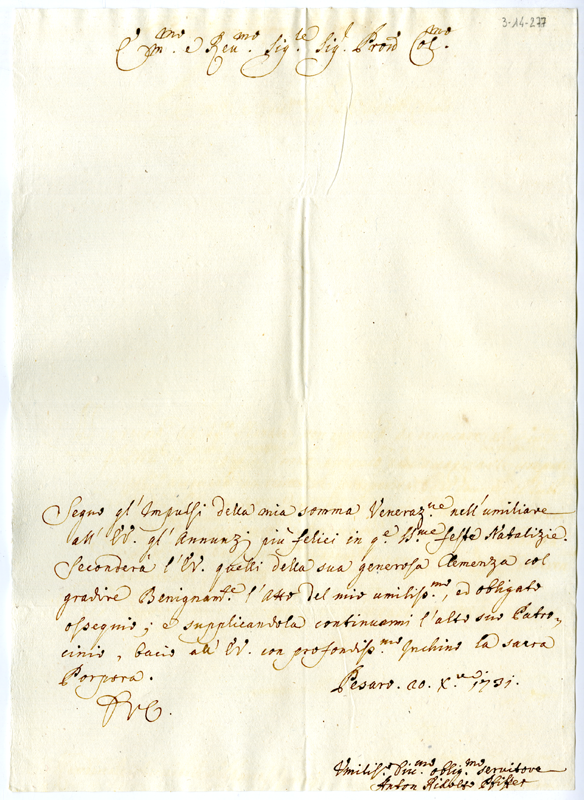 3-14-277
E'mo. e Reu.mo Sig.re Sig.r Prõn Col.mo
Seguo gl'Impulsi della mia somma Veneraz.ne nell'umiliare
all'EV. gl'Annunzj più felici in q.e S.me feste Natalizie.
Seconderà l'EV. quelli della sua generosa Clemenza col
gradire Benignam.te l'Atto del mio umiliss.mo, ed obligato
ossequio; e supplicandola continuarmi l'alto suo Patro-
cinio, bacio all'EV. con profondiss.mo Inchino la sacra
Porpora.
Pesaro. 20. X.bre 1731.
Umiliss.o Div.mo oblig.mo servitore
Anton Ridolfo Pfiffer